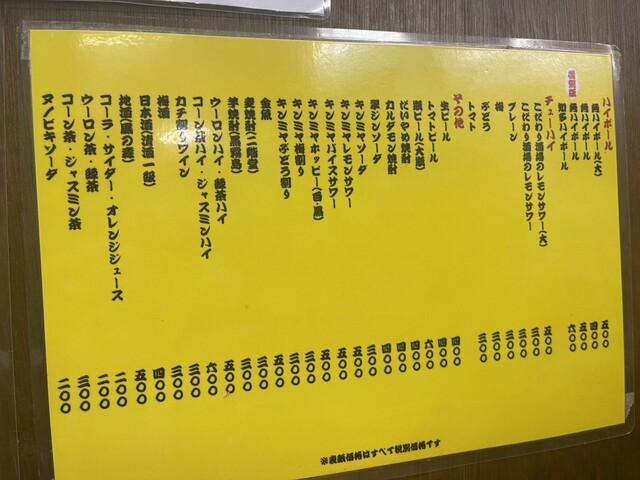 ハイボール
角ハイボール(大) 五〇〇
角ハイボール 四〇〇
ハイボール 五〇〇
知多ハイボール 六〇〇
チューハイ
こだわり酒場のレモンサワー(大) 五〇〇
こだわり酒場のレモンサワー 三〇〇
プレーン 三〇〇
梅 三〇〇
ぶどう 三〇〇
トマト 三〇〇
その他
生ビール 四〇〇
トマトビール 四〇〇
瓶ビール(大瓶) 六〇〇
だいやめ焼酎 四〇〇
カルダモン焼酎 四〇〇
翠ジンソーダ 四〇〇
キンミヤソーダ 三〇〇
キンミヤレモンサワー 五〇〇
キンミヤバイスサワー 五〇〇
キンミヤホッピー(白・黒) 五〇〇
キンミヤ梅割り 三〇〇
キンミヤぶどう割り 三〇〇
金魚 五〇〇
麦焼酎(二階堂) 三〇〇
芋焼酎(黒霧島) 三〇〇
ウーロンハイ・緑茶ハイ 五〇〇
コーン茶ハイ・ジャスミンハイ 六〇〇
カチ割りワイン 三〇〇
梅酒 三〇〇
日本酒(清酒一級) 四〇〇
地酒(風の森) 五〇〇
コーラ・サイダー・オレンジジュース 二〇〇
ウーロン茶・緑茶 二〇〇
コーン茶・ジャスミン茶 三〇〇
ヌノビキソーダ 二〇〇
※表紙価格はすべて税別価格です